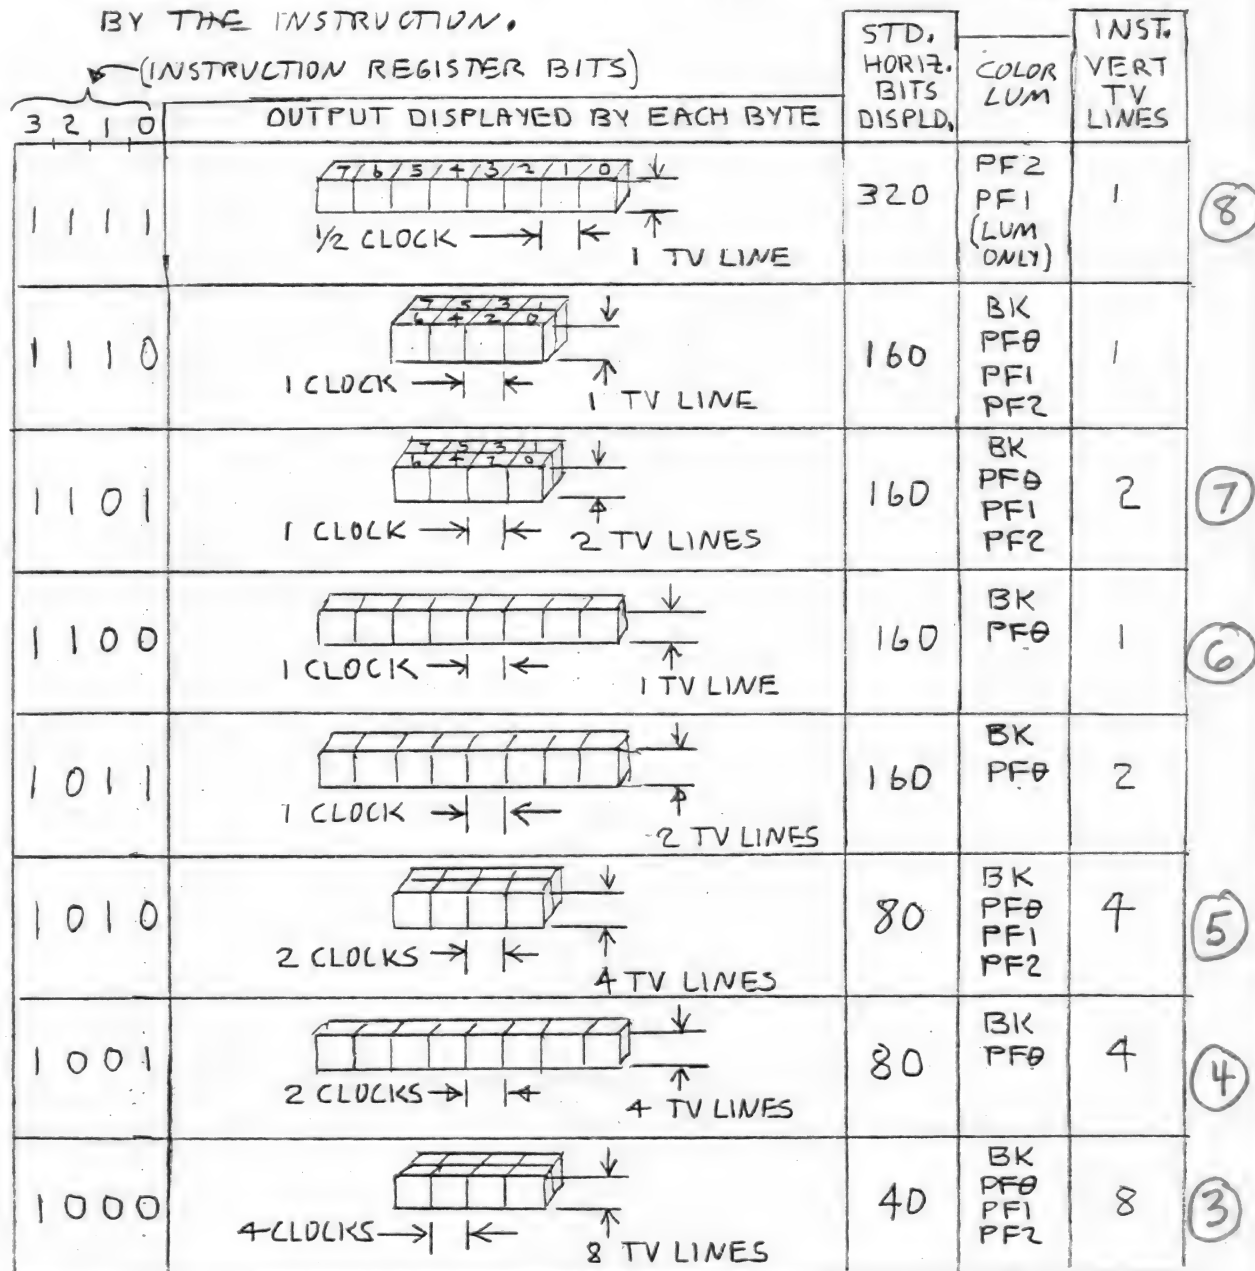 BY THE INSTRUCTION.
(INSTRUCTION REGISTER BITS)
3 2 1 0
OUTPUT DISPLAYED BY EACH BYTE
STD. HORIZ. BITS DISPLD.
COLOR LUM
INST. VERT TV LINES
1 1 1 1
7 6 5 4 3 2 1 0
1/2 CLOCK
1 TV LINE
320
PF2
PF1
(LUM
ONLY)
1
8
1 1 1 0
7 5 3 1
6 4 2 0
1 CLOCK
1 TV LINE
160
BK
PF0
PF1
PF2
1
1 1 0 1
7 5 3 1
6 4 2 0
1 CLOCK
2 TV LINES
160
BK
PF0
PF1
PF2
2
7
1 1 0 0
1 CLOCK
1 TV LINE
160
BK
PF0
1
6
1 0 1 1
1 CLOCK
2 TV LINES
160
BK
PF0
2
1 0 1 0
2 CLOCKS
4 TV LINES
80
BK
PF0
PF1
PF2
4
5
1 0 0 1
2 CLOCKS
4 TV LINES
80
BK
PF0
4
4
1 0 0 0
4 CLOCKS
8 TV LINES
40
BK
PF0
PF1
PF2
8
3